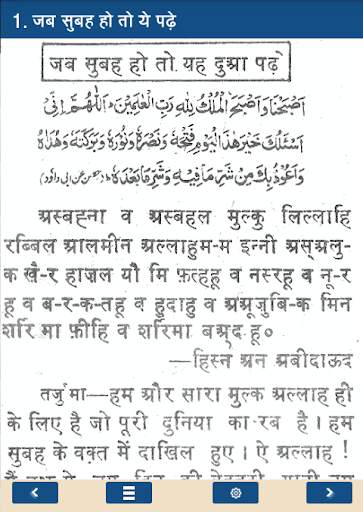 1. जब सुबह हो तो ये पढ़े
जब सुबह हो तो यह दुआ पढ़े
اَصْبَحْنَا وَاَصْبَحَ الْمُلْكُ لِلّٰهِ رَبِّ الْعٰلَمِيْنَ اَللّٰهُمَّ اِنِّىْ
اَسْئَلُكَ خَيْرَ هٰذَا الْيَوْمِ فَتْحَهٗ وَنَصْرَهٗ وَنُوْرَهٗ وَبَرَكَتَهٗ وَهُدَاهُ
وَاَعُوْذُ بِكَ مِنْ شَرِّ مَا فِيْهِ وَشَرِّ مَا بَعْدَهٗ (حصن عن ابی داود)
अस्बह्ना व अस्बहल मुल्कु लिल्लाहि
रब्बिल आलमीन अल्लाहुम-म इन्नी अस्अलु-
क खै-र हाज़ल यौ मि फ़त्हहू व नस्रहू व नू-र
हू व ब-र-क-तहू व हुदाहु व अअूजुबि-क मिन
शर्रि मा फ़ीहि व शर्रिमा बअ्द हू०
—हिस्न अन अबीदाऊद
तर्जुमा—हम और सारा मुल्क अल्लाह ही
के लिए है जो पूरी दुनिया का रब है। हम
सुबह के वक़्त में दाखिल हुए। ऐ अल्लाह!